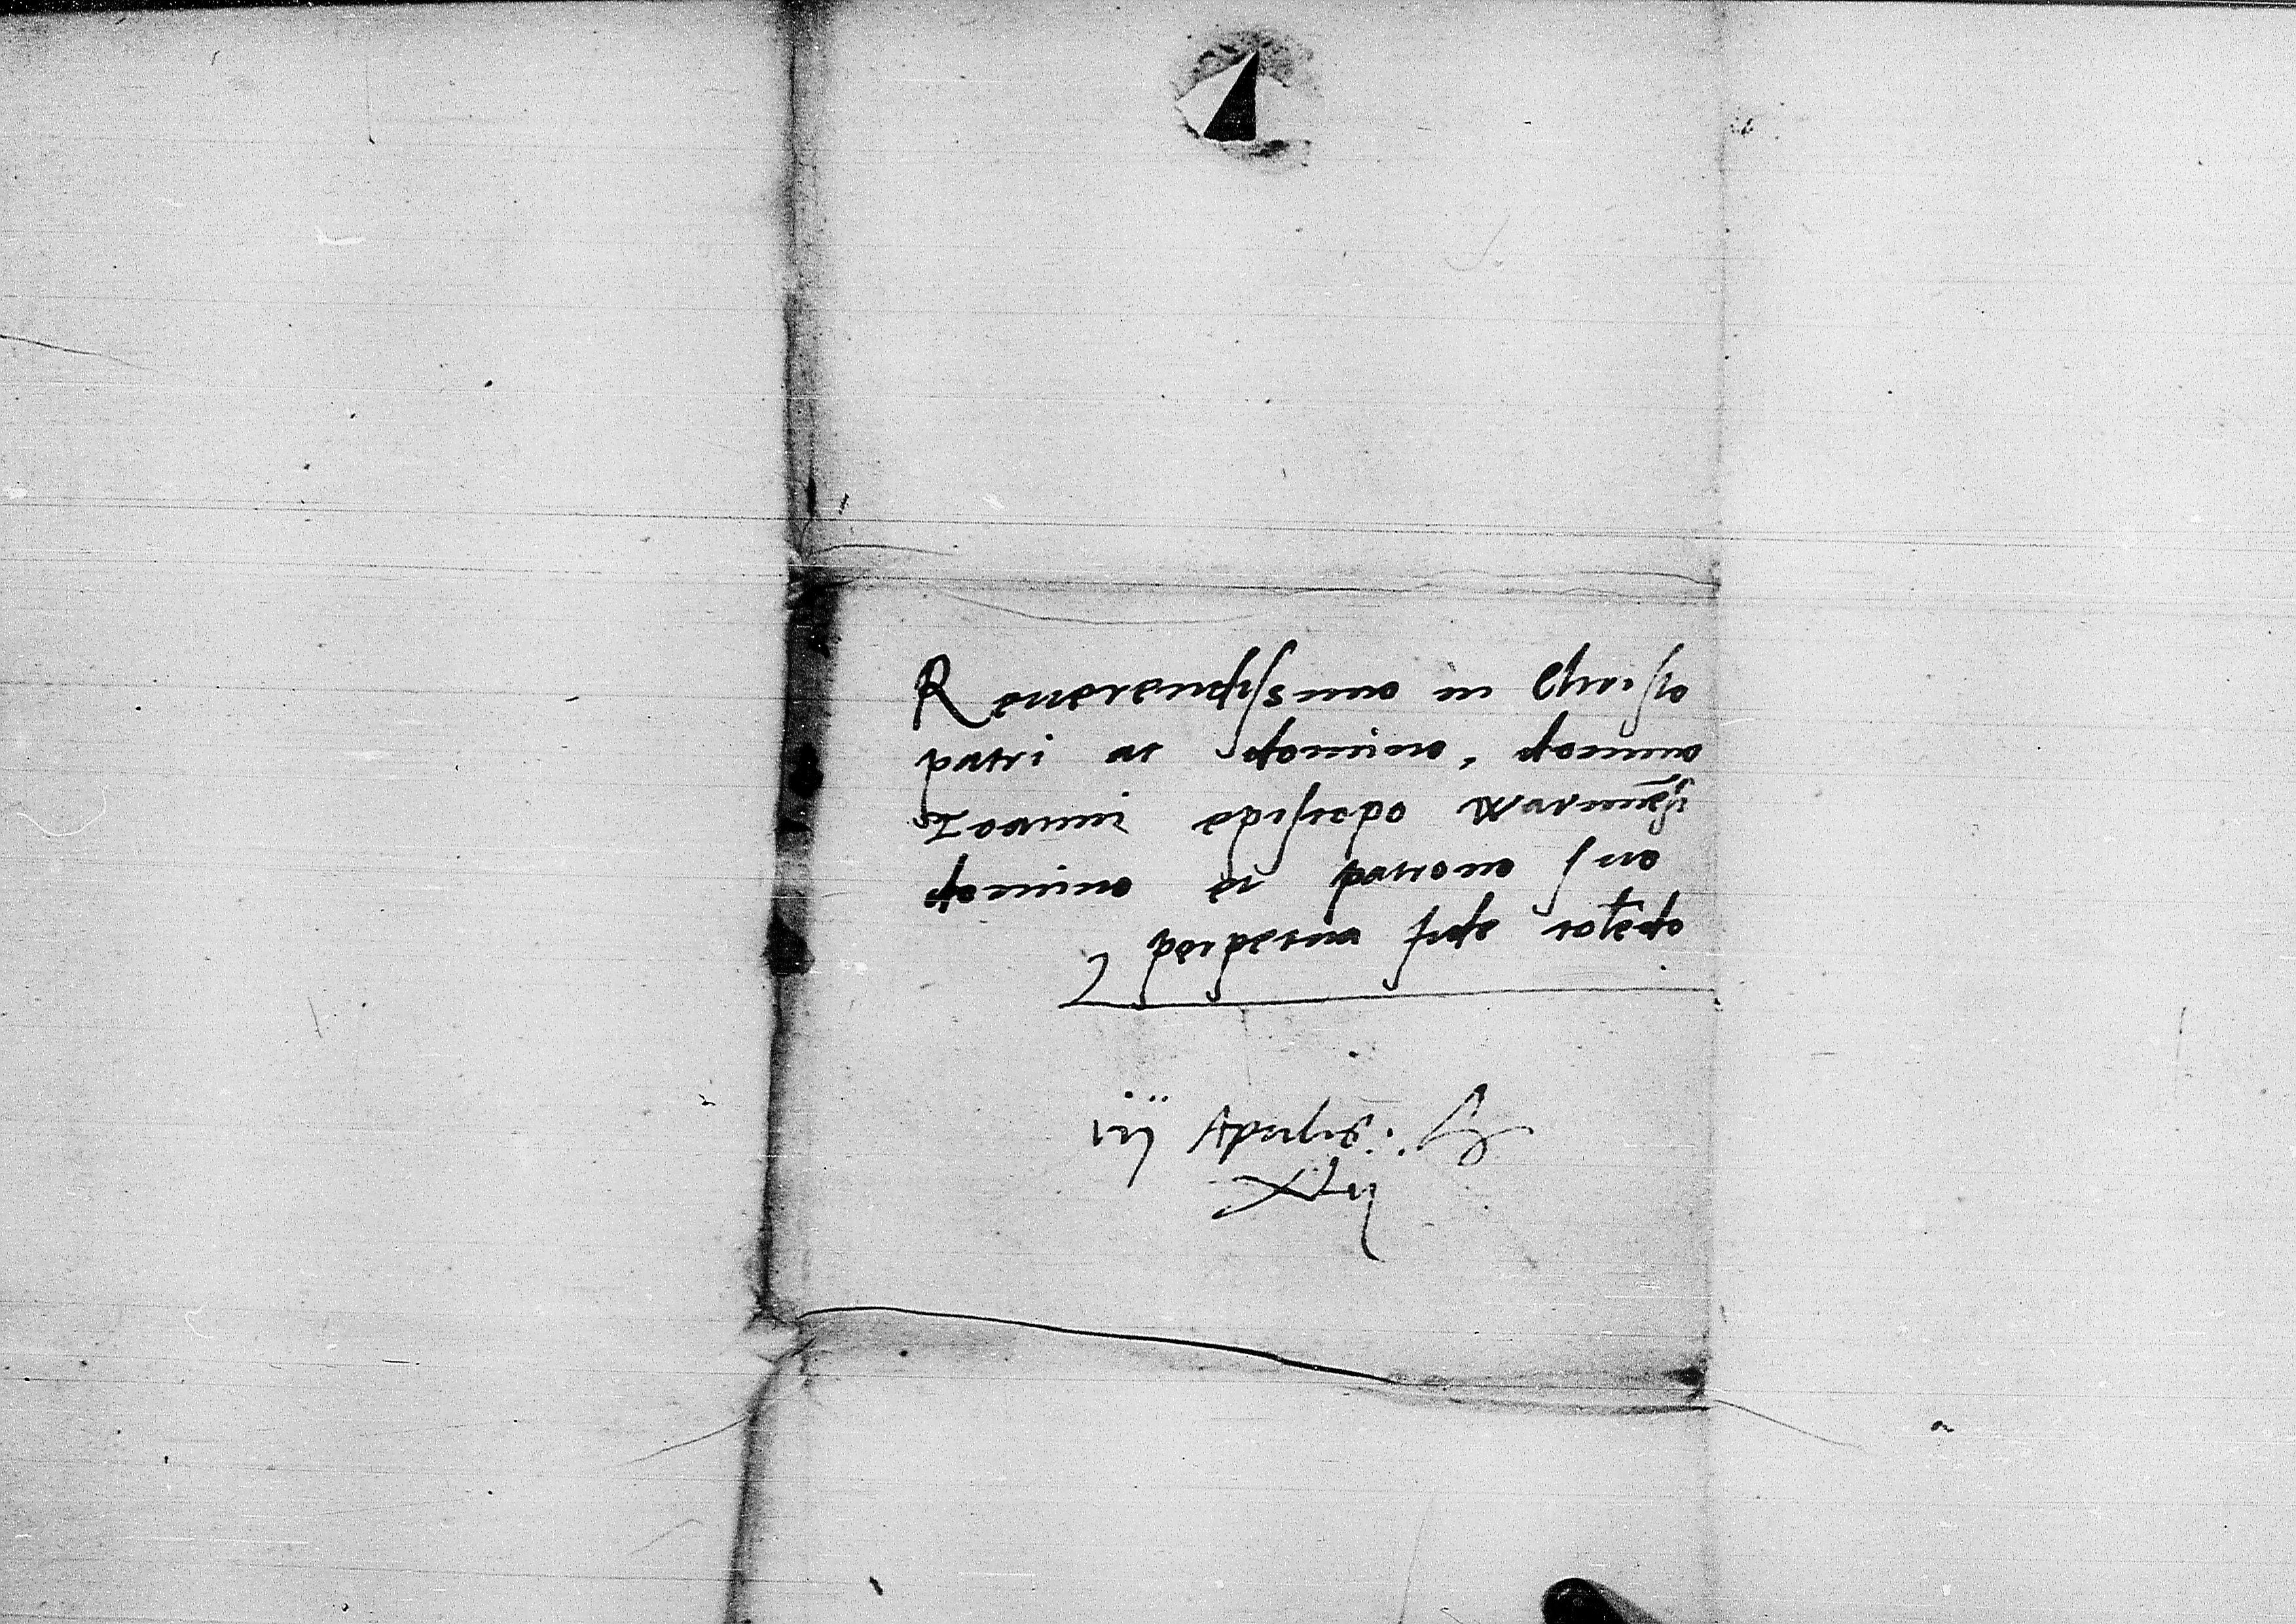 Reuerendissimo in Christo
patri ac domino, domino
Ioanni episcopo Warmien̄si
domino et patrono suo
perpetua fide colēdo
iij Aprilis:.
XLij